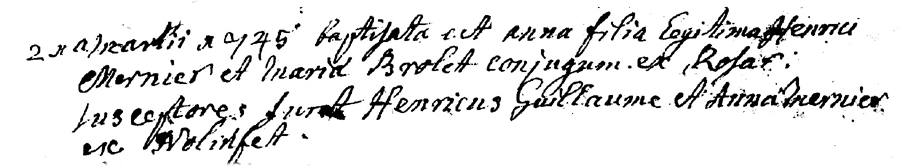 21a martii 1745 baptisata est anna filia legitima Henrici
Mernier et maria Brolet conjugum ex Rosar:
susceptores sunt Henricus Guillaume et Anna mernier
ex